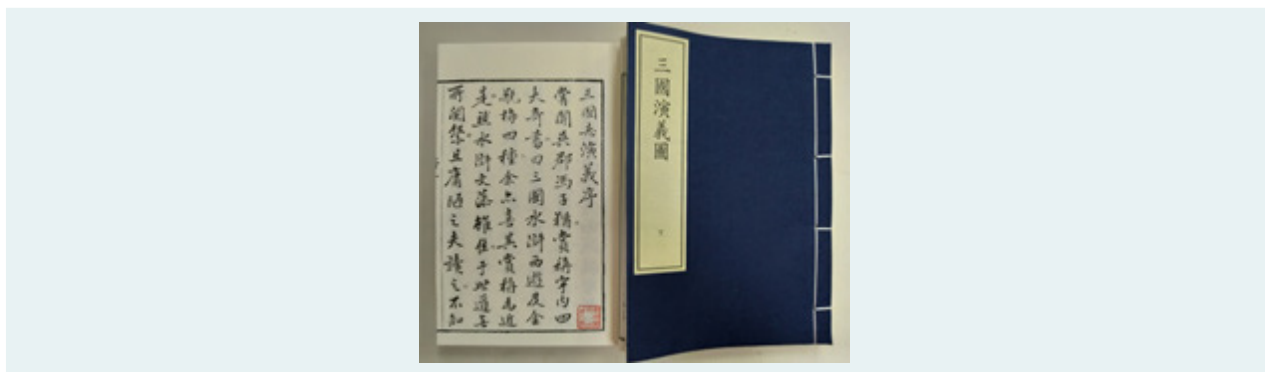 三國演義圖
下
三國志演義序
嘗聞吳郡馮子猶賞稱宇內四
大奇書曰三國水滸西遊及金
瓶梅四種余亦喜其賞稱為近
是然水滸文藻雖佳于世道無
所關繫且庸陋之夫讀之不知